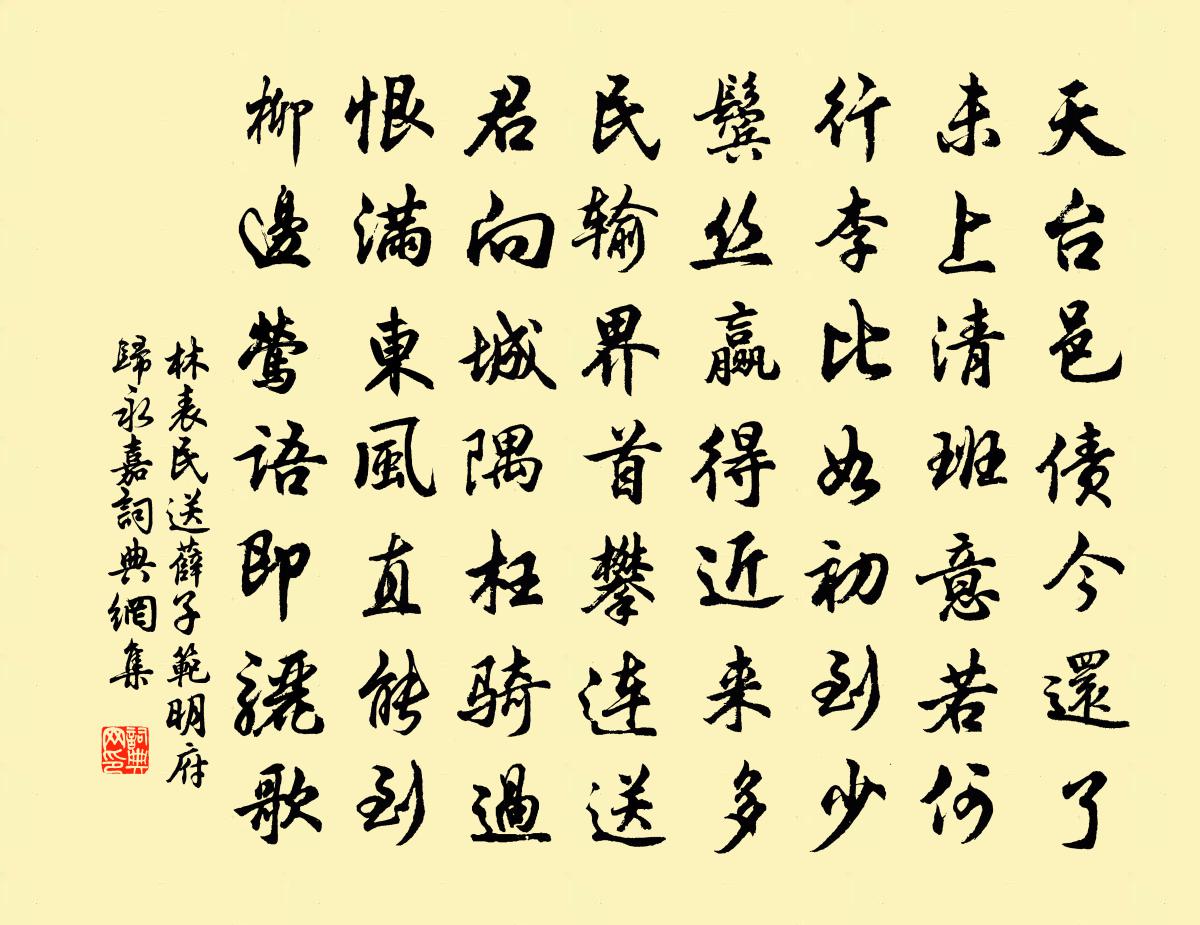 天台邑债今還了
未上清班意若何
行李比如初到少
鬓丝赢得近来多
民输界首攀连送
君向城隅枉骑過
恨满東風直能到
柳邊莺语即骊歌
林表民送薛子範明府
歸永嘉詞典網集
詞典网印